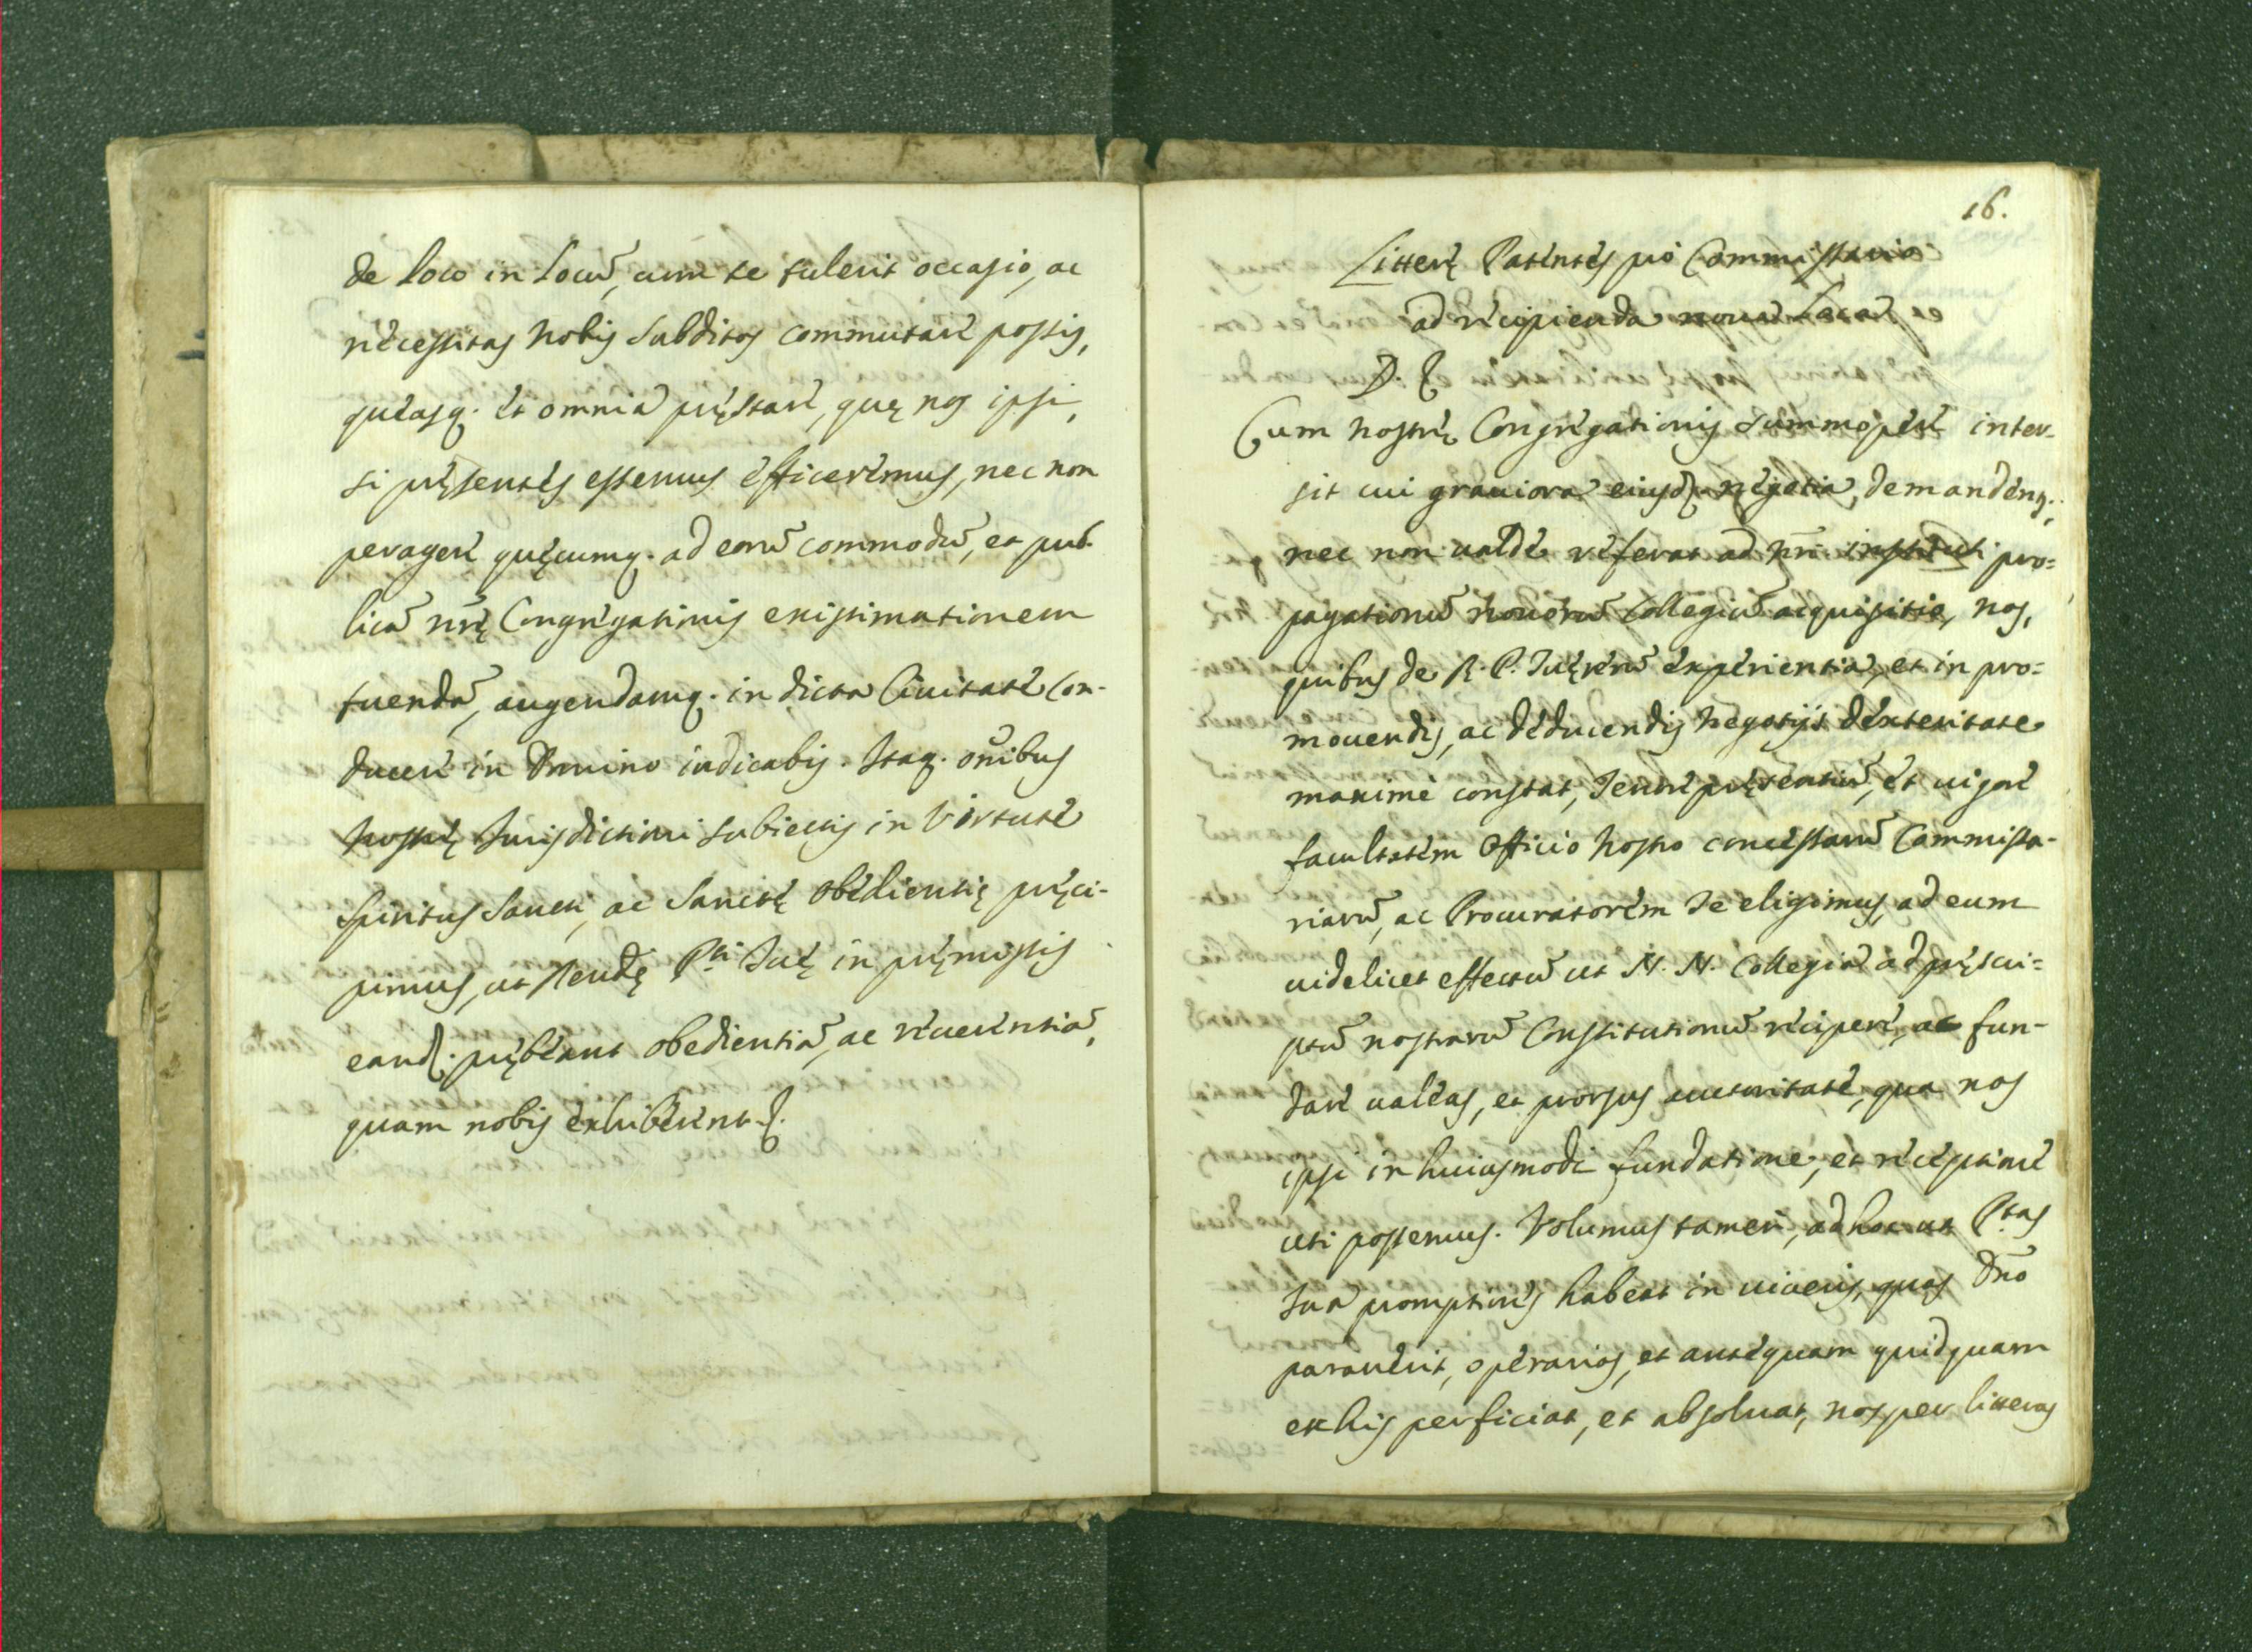 de loco in locū, cum se tulerit occasio, ac
necessitas nobis subditos commutare possis,
queasq. et omnia pręstare, quę nos ipsi,
si pręsentes essemus efficeremus, nec non
peragere quęcumq. ad eorū commodū, et pub-
licā nrę Congregationis existimationem
tuendā, augendamq. in dicta Ciuitate con-
ducere in Domino iudicabis. Itaq. oībus
nostrę Jurisdictioni subiectis in Virtute
Spiritus Sancti, ac Sanctę obedientię pręci-
pimus, ut Reudę Pti Tuę in pręmissis
eand. prębeant obedientiā, ac reuerentiā,
quam nobis exhiberent &.
16.
Litterę Patentes pro Commissario
ad recipienda noua Loca
D. &
Cum nostrę Congregationis summopere inter-
sit cui grauiora eiusd. negotia demandenṱ,
nec non ualde referat ad nri instituti pro=
pagationē nouorū Collegiorū acquisitio, nos,
quibus de R. P. Tuę rerū experientia, et in pro=
mouendis, ac deducendis negotijs dexteritate
maxime constat, Tenore pręsentiū, et uigore
facultatem Officio nostro concessarū Commissa-
riarū, ac Procuratorem Te eligimus, ad eum
uidelicet effectū ut N. N. Collegia ad pręscri=
ptū nostrarū Constitutionū recipere, ac fun-
dare ualeas, ea prorsus auctoritate, qua nos
ipsi in huiusmodi fundatione, et receptione
uti possemus. Volumus tamen, ad hoc ut P.tas
Tua promptiores habeat in uineis, quas Dno
parauerit, operarios, et antequam quidquam
ex his perficiat, et absoluat, nos per litteras